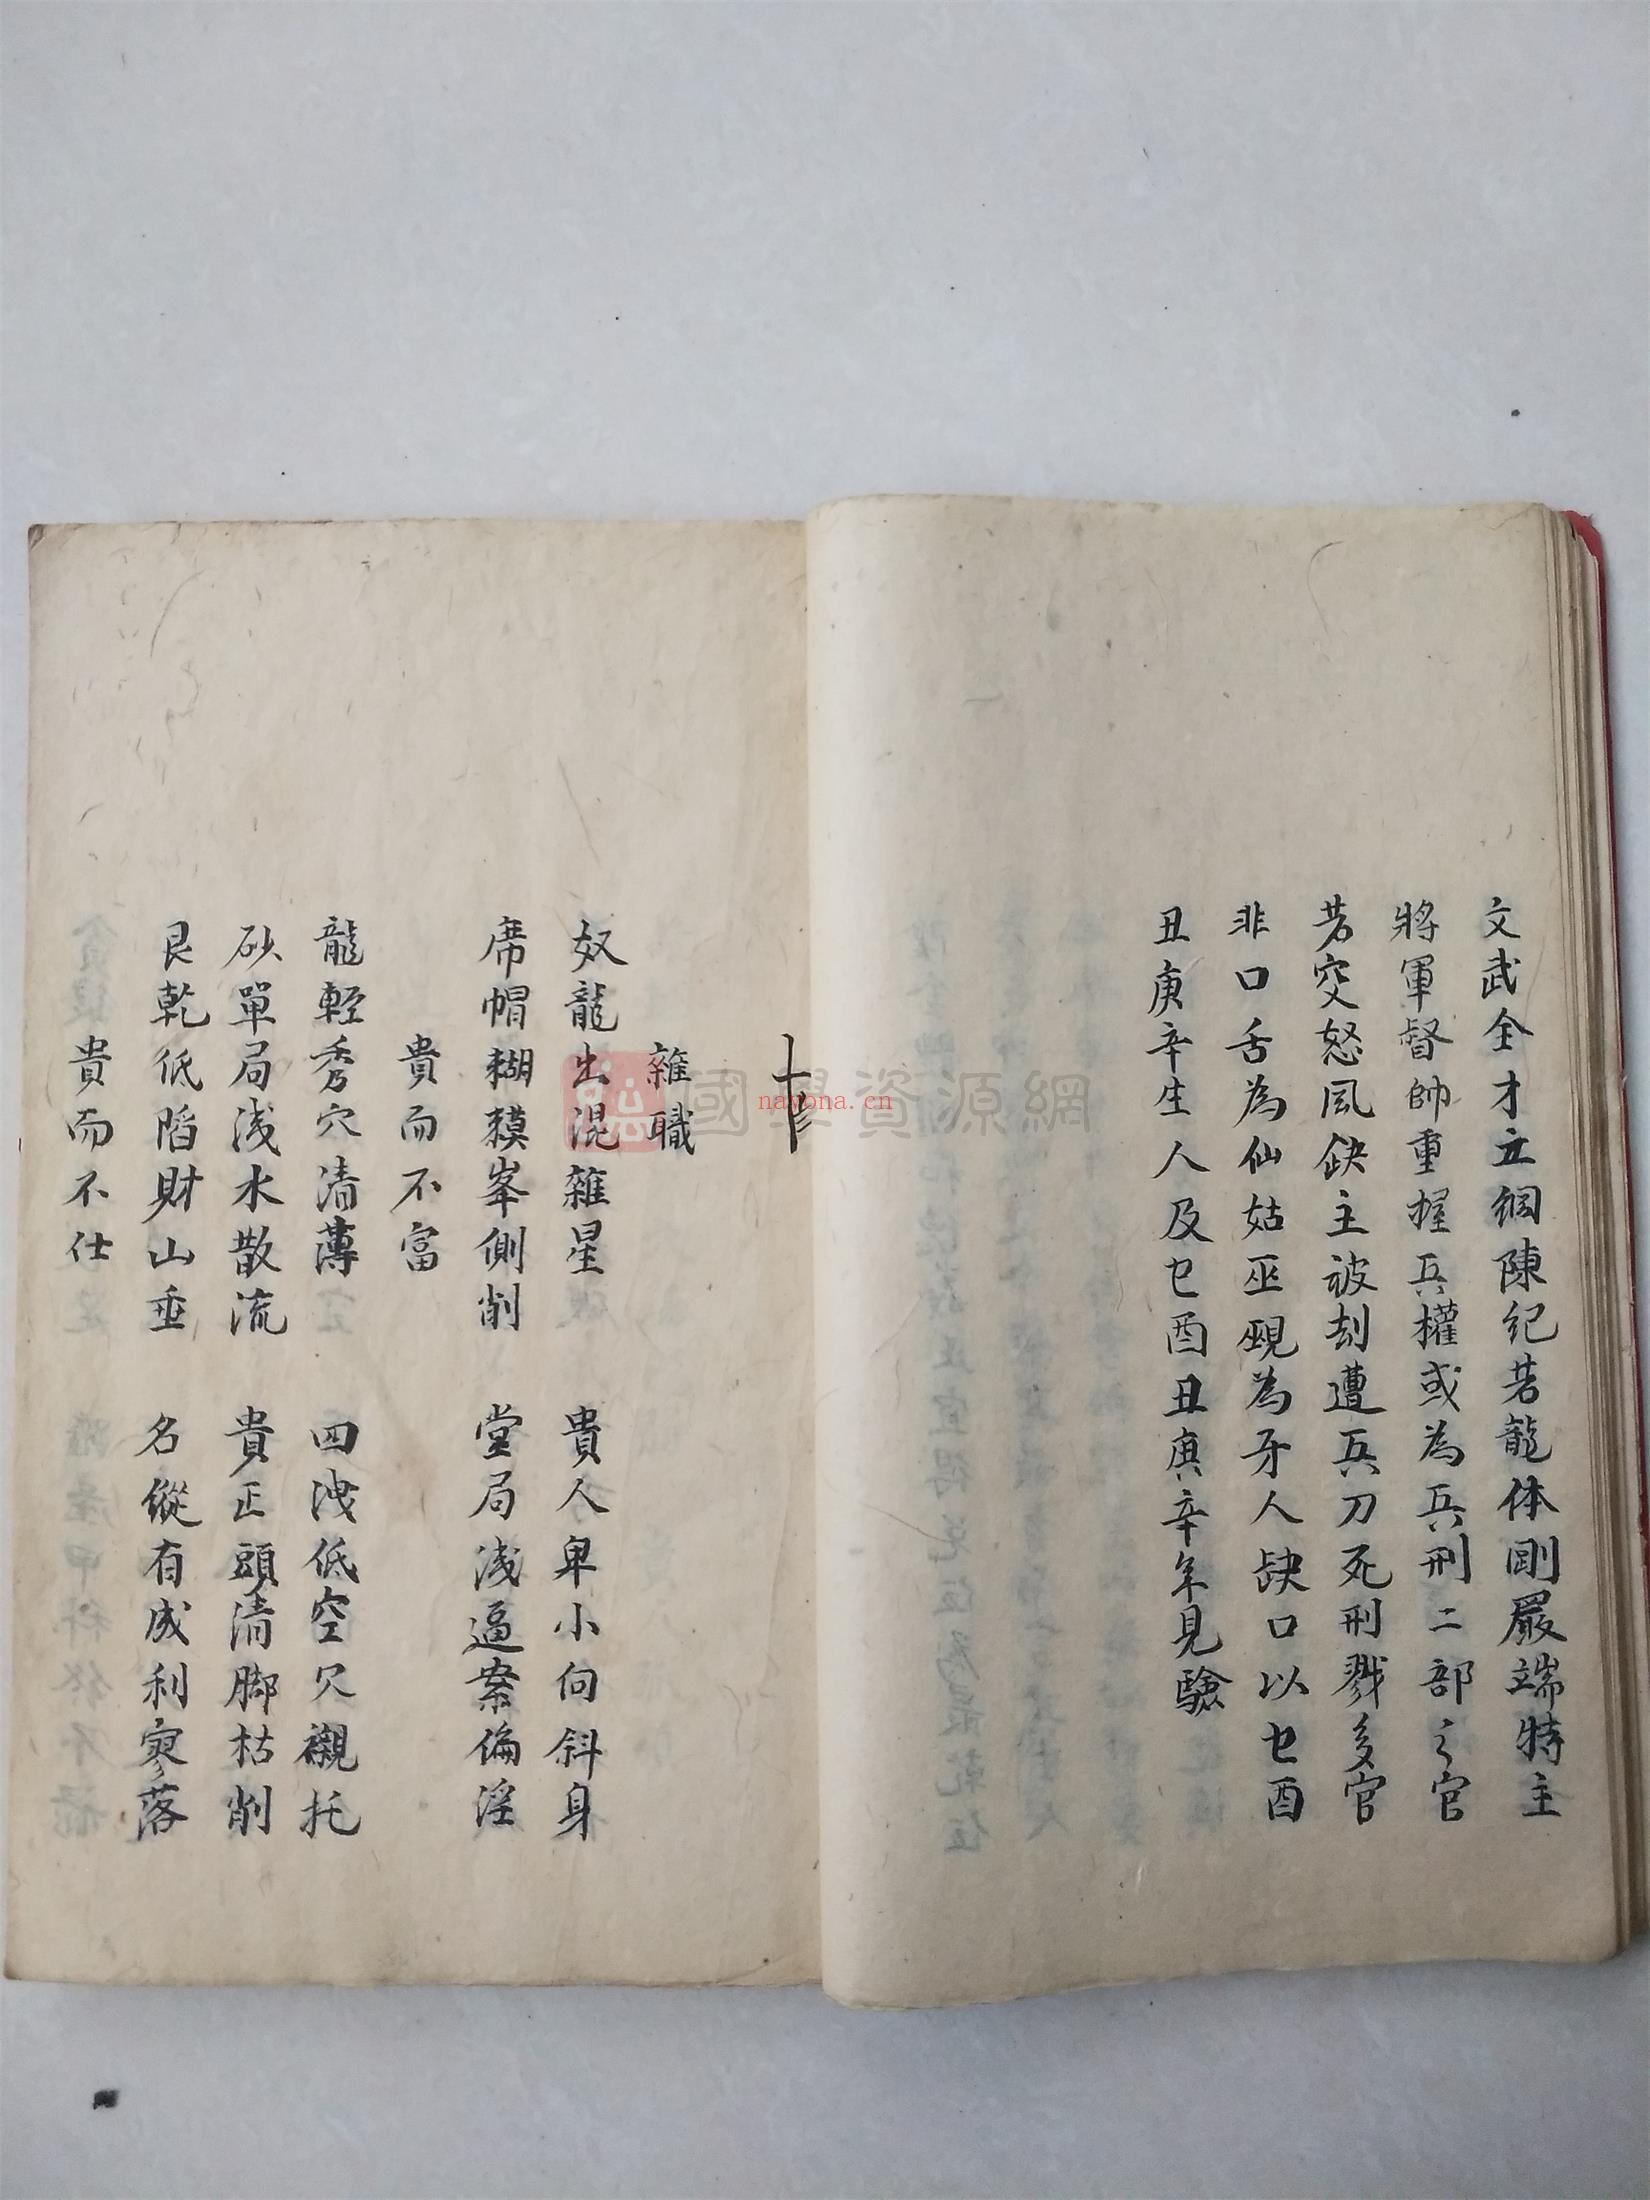 文武全才立綱陳紀若龍体剛嚴端特主
將軍督帥重握兵權或為兵刑二部之官
若突怒風缺主被刼遭兵刀死刑戮多官
非口舌為仙姑巫覡為牙人缺口以乜酉
丑庚辛生人及乜酉丑庚辛年見驗
雜職
奴龍出混雜星 貴人卑小向斜身
席帽糊糢峯側削 堂局浅逼案偏淫
貴而不富
龍輕秀穴清薄 四洩低空欠襯托
砂單局浅水散流 貴正頭清脚枯削
艮乾低陷財山垂 名縱有成利寥落
貴而不仕
國學資源網
nayona.cn